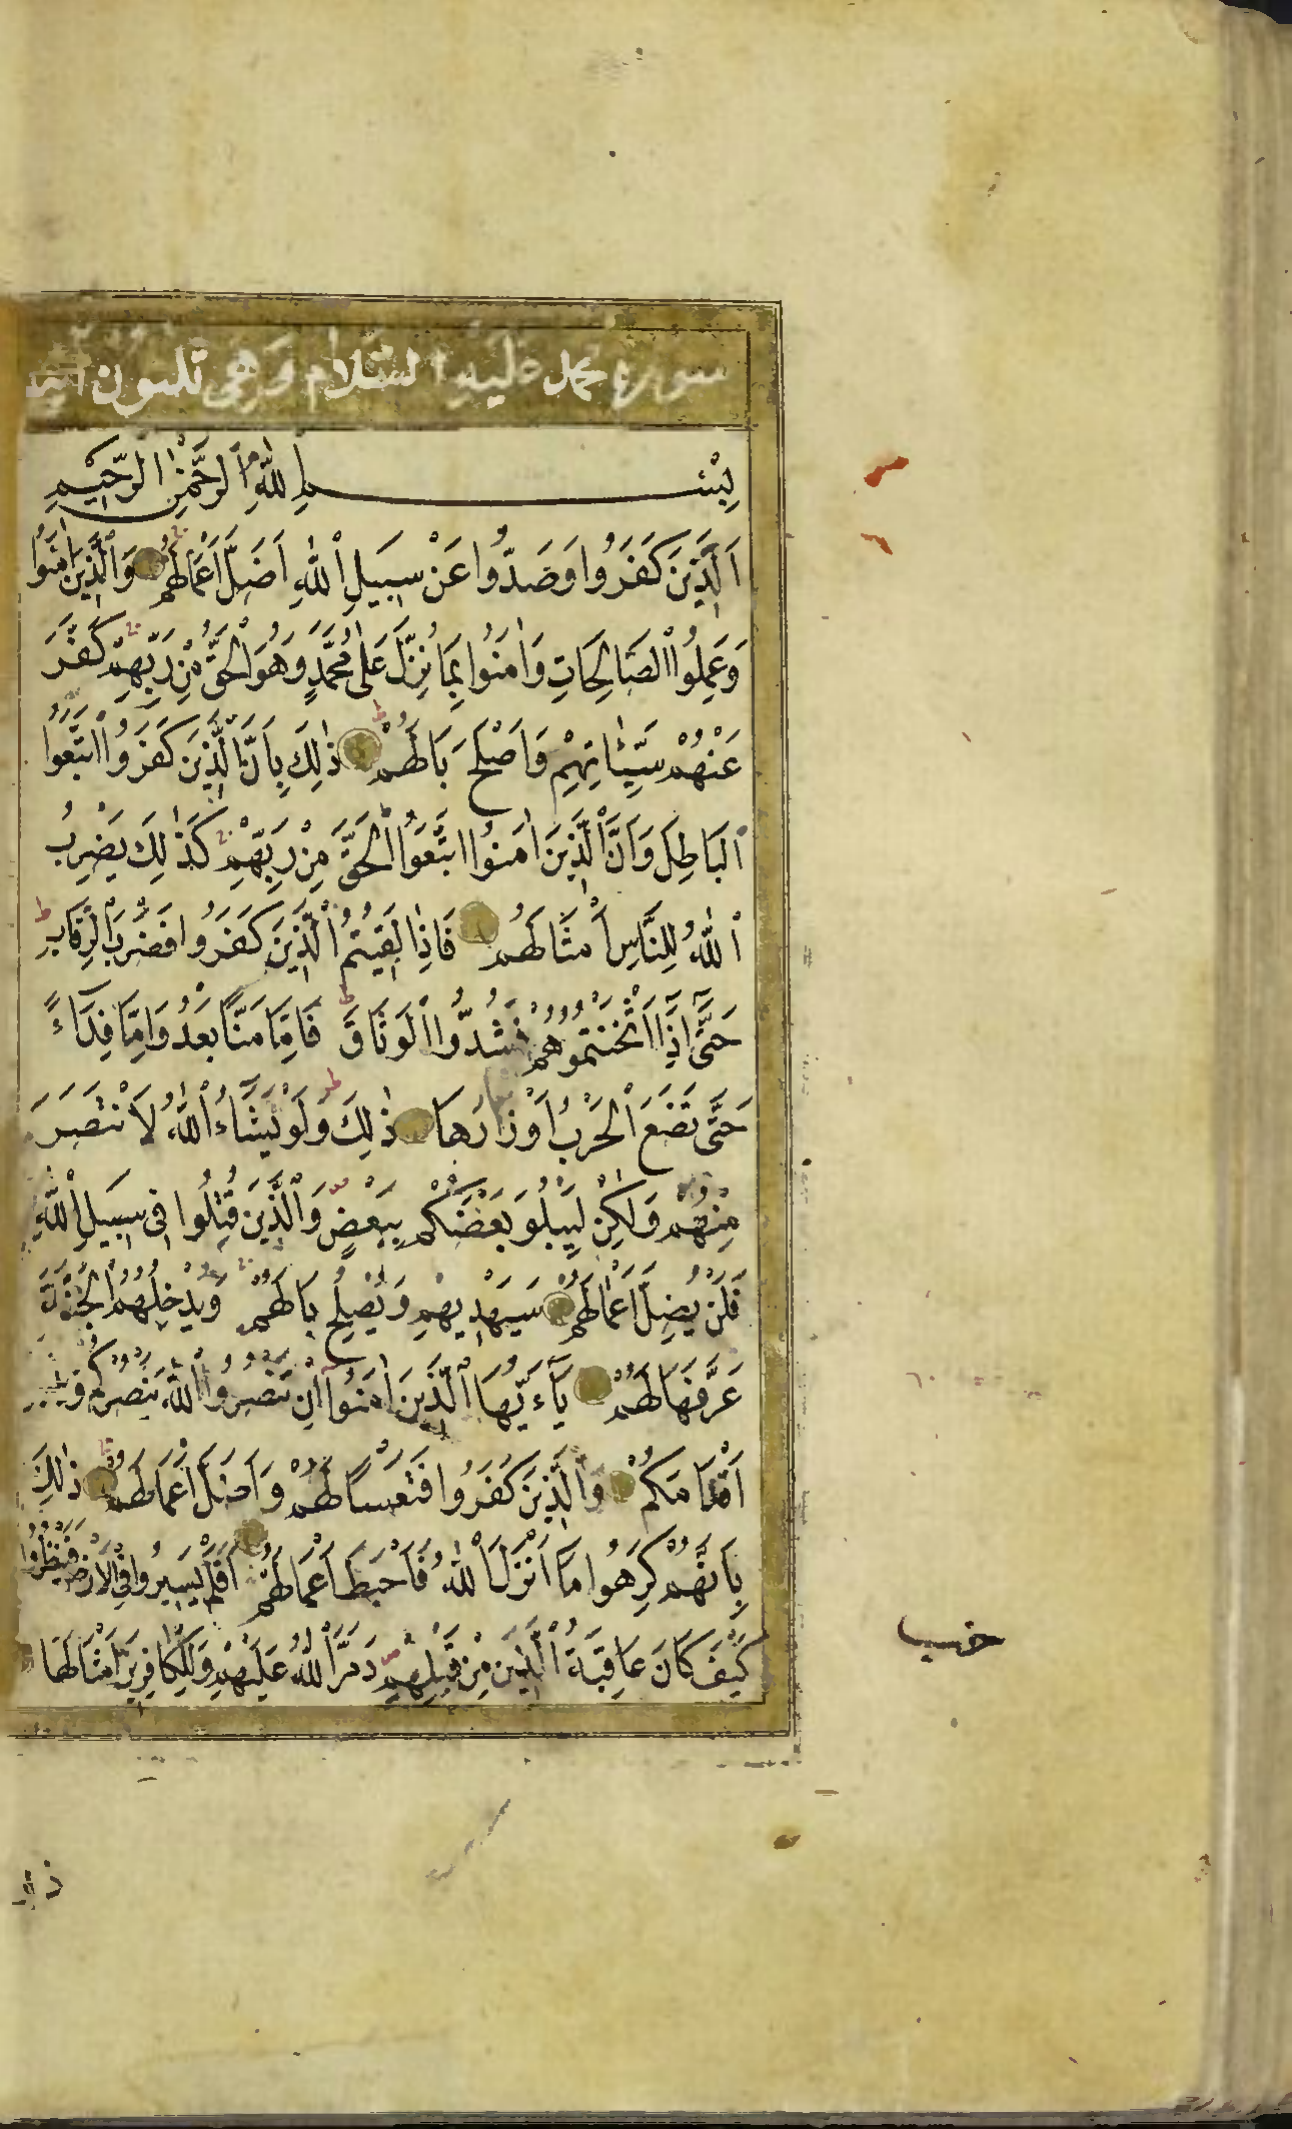 سورة محمد عليه السلام وهي ثلثون آية
بِسْمِ اللّٰهِ الرَّحْمٰنِ الرَّحِيمِ
اَلَّذِينَ كَفَرُوا وَصَدُّوا عَنْ سَبِيلِ اللّٰهِ اَضَلَّ اَعْمَالَهُمْ وَالَّذِينَ اٰمَنُوا
وَعَمِلُوا الصَّالِحَاتِ وَاٰمَنُوا بِمَا نُزِّلَ عَلٰى مُحَمَّدٍ وَهُوَ الْحَقُّ مِنْ رَبِّهِمْ كَفَّرَ
عَنْهُمْ سَيِّئَاتِهِمْ وَاَصْلَحَ بَالَهُمْ ذٰلِكَ بِاَنَّ الَّذِينَ كَفَرُوا اتَّبَعُوا
الْبَاطِلَ وَاَنَّ الَّذِينَ اٰمَنُوا اتَّبَعُوا الْحَقَّ مِنْ رَبِّهِمْ كَذٰلِكَ يَضْرِبُ
اللّٰهُ لِلنَّاسِ اَمْثَالَهُمْ فَاِذَا لَقِيتُمُ الَّذِينَ كَفَرُوا فَضَرْبَ الرِّقَابِ
حَتّٰى اِذَا اَثْخَنْتُمُوهُمْ فَشُدُّوا الْوَثَاقَ فَاِمَّا مَنًّا بَعْدُ وَاِمَّا فِدَاءً
حَتّٰى تَضَعَ الْحَرْبُ اَوْزَارَهَا ذٰلِكَ وَلَوْ يَشَاءُ اللّٰهُ لَانْتَصَرَ
مِنْهُمْ وَلٰكِنْ لِيَبْلُوَ بَعْضَكُمْ بِبَعْضٍ وَالَّذِينَ قُتِلُوا فِى سَبِيلِ اللّٰهِ
فَلَنْ يُضِلَّ اَعْمَالَهُمْ سَيَهْدِيهِمْ وَيُصْلِحُ بَالَهُمْ وَيُدْخِلُهُمُ الْجَنَّةَ
عَرَّفَهَا لَهُمْ يَآءَيُّهَا الَّذِينَ اٰمَنُوا اِنْ تَنْصُرُوا اللّٰهَ يَنْصُرْكُمْ وَيُثَبِّتْ
اَقْدَامَكُمْ وَالَّذِينَ كَفَرُوا فَتَعْسًا لَهُمْ وَاَضَلَّ اَعْمَالَهُمْ ذٰلِكَ
بِاَنَّهُمْ كَرِهُوا مَا اَنْزَلَ اللّٰهُ فَاَحْبَطَ اَعْمَالَهُمْ اَفَلَمْ يَسِيرُوا فِى الْاَرْضِ فَيَنْظُرُوا
كَيْفَ كَانَ عَاقِبَةُ الَّذِينَ مِنْ قَبْلِهِمْ دَمَّرَ اللّٰهُ عَلَيْهِمْ وَلِلْكَافِرِينَ اَمْثَالُهَا
حزب